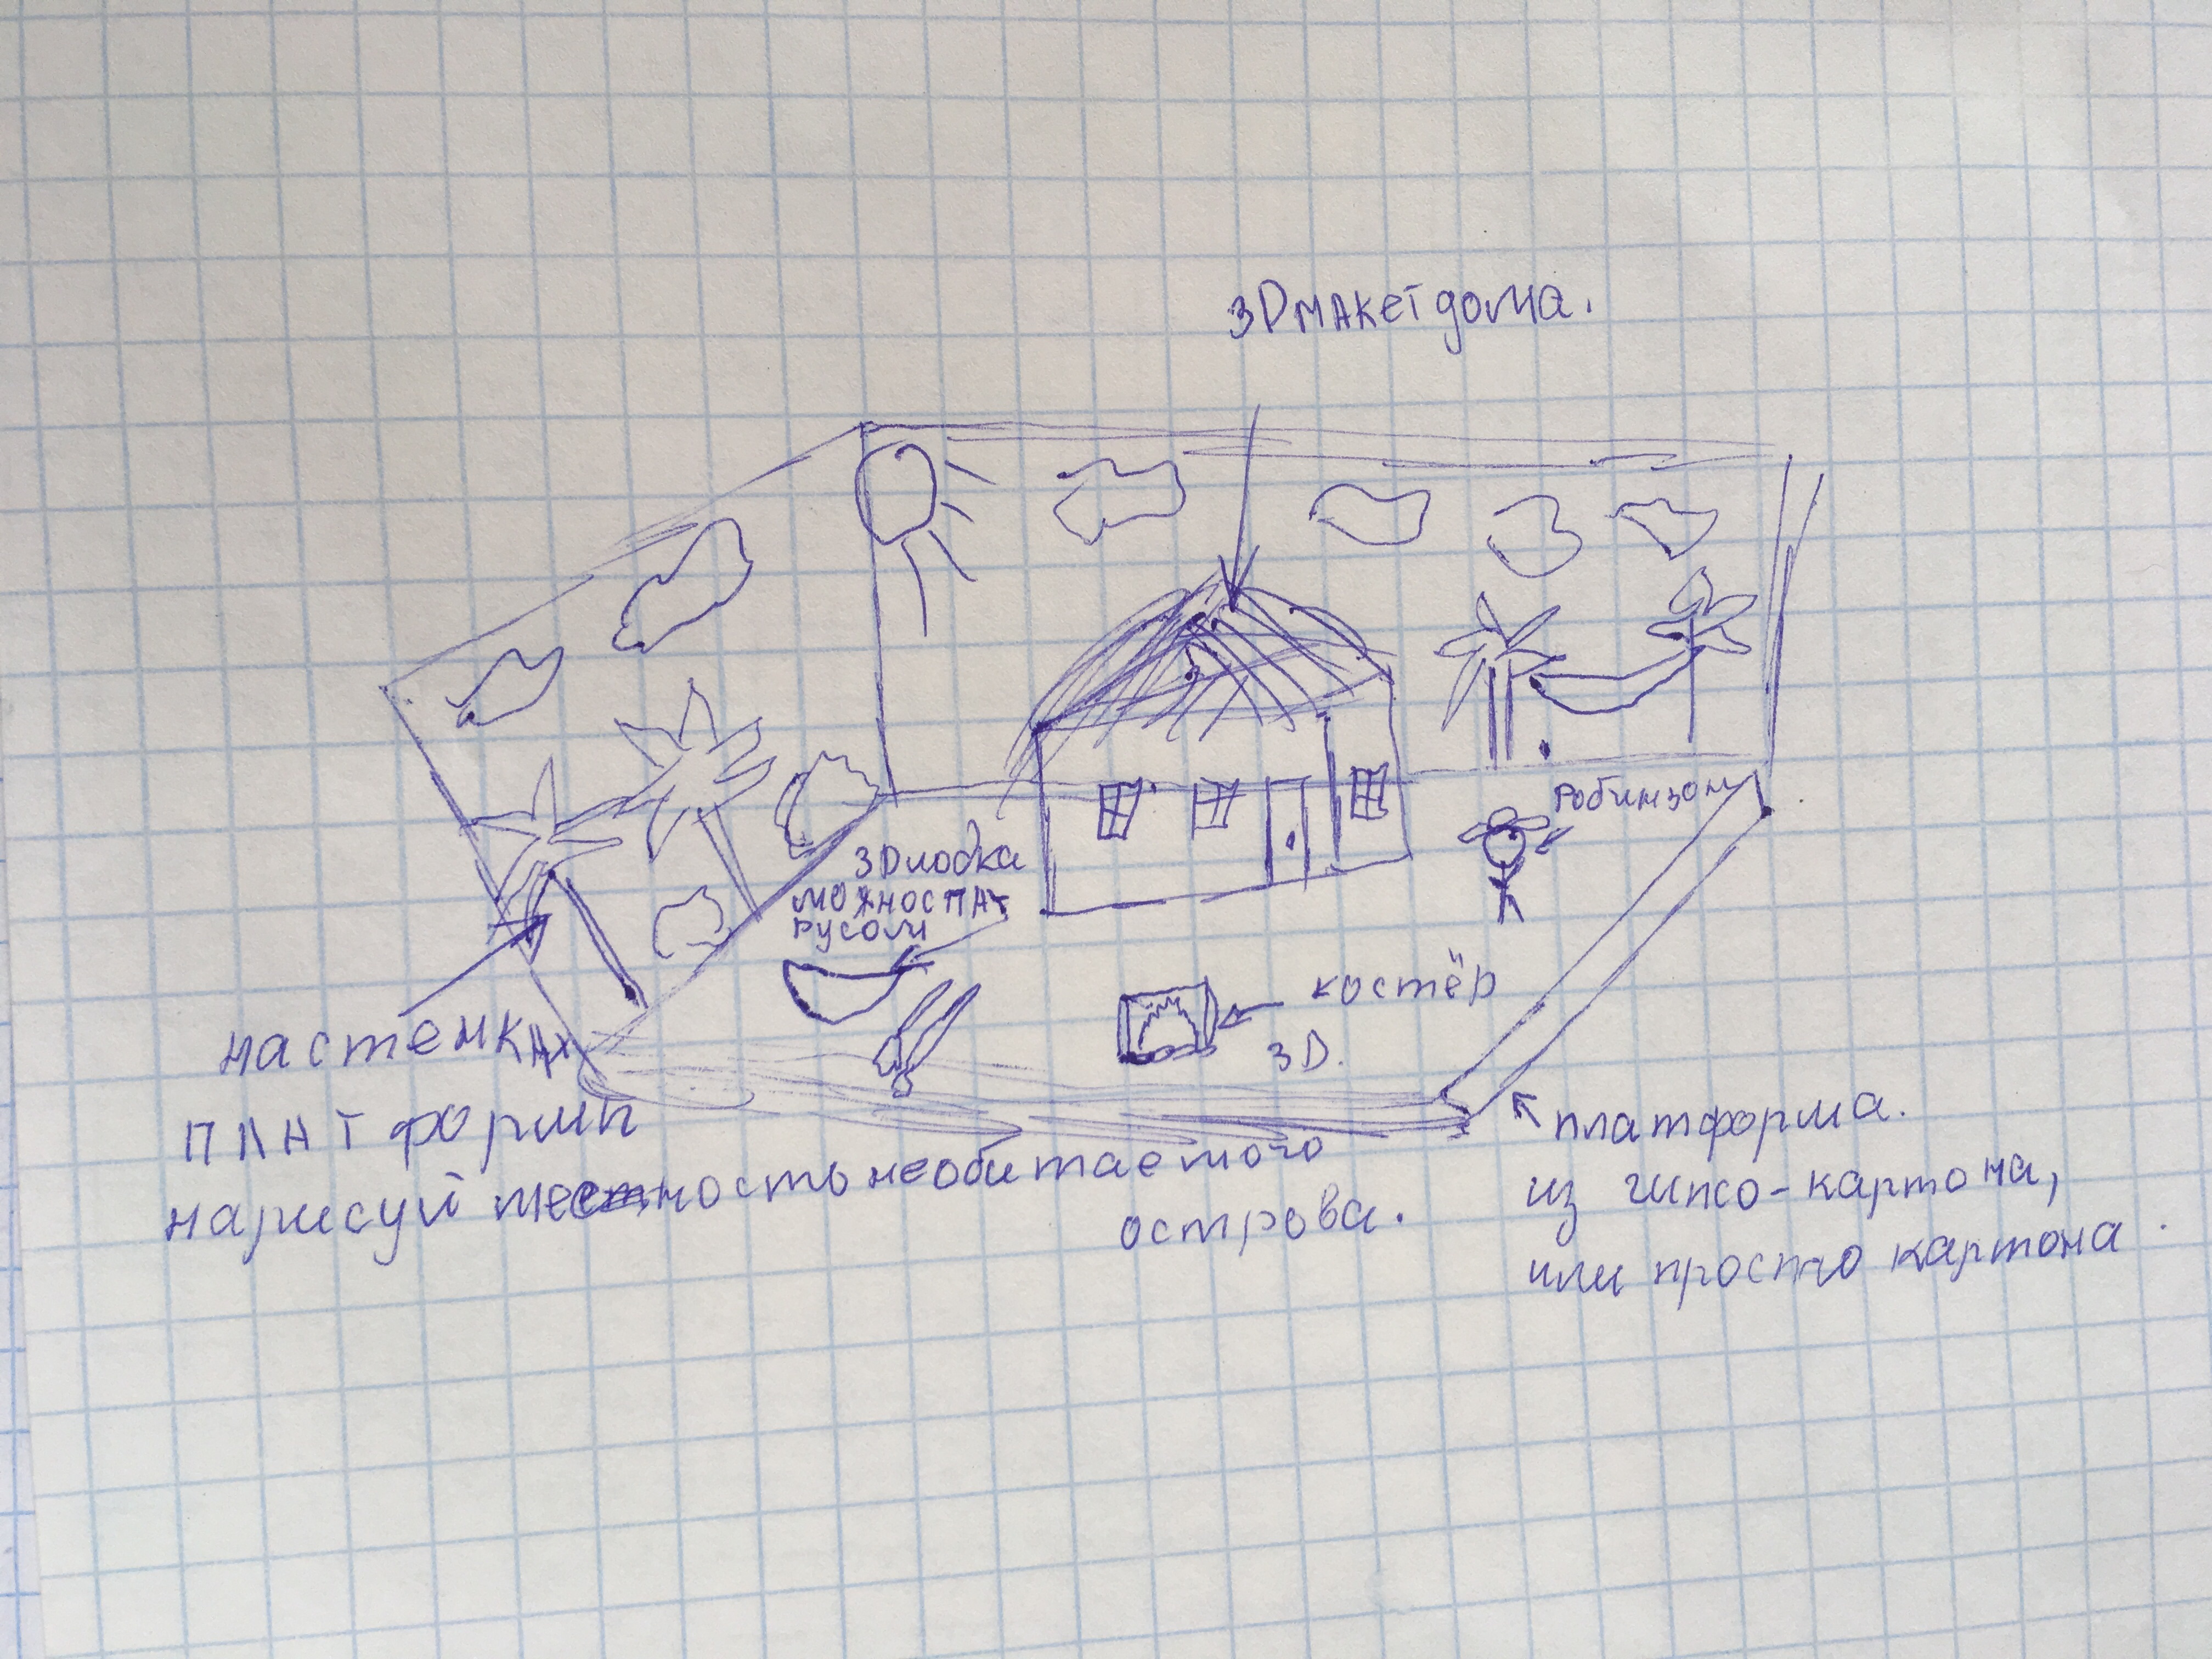 3D макет дома.
Робинзон
3D лодка
можно с па
русом
костёр
3D.
на стенках
платформы
нарисуй местность необитаемого
острова.
платформа.
из гипсо-картона,
или просто картона.